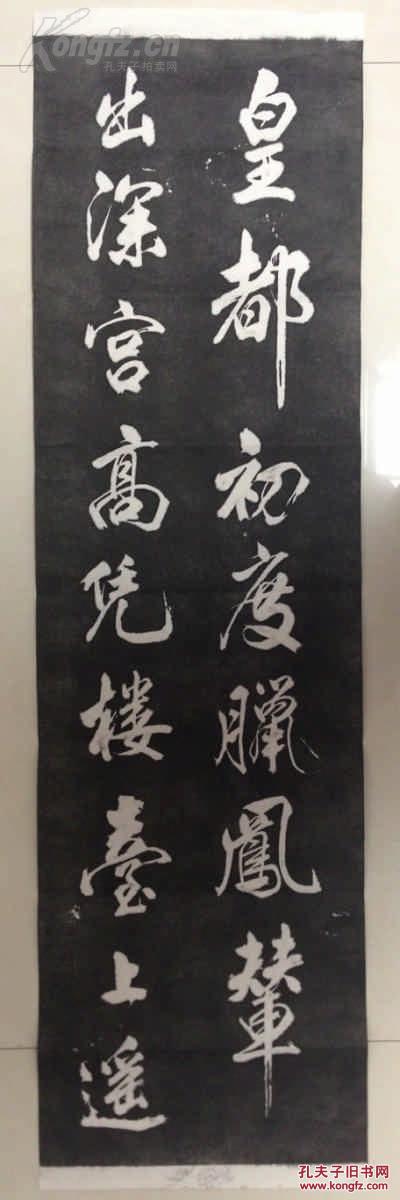 皇都初度臘鳳輦
出深宮高凭樓臺上遥
Kongfz.cn
孔夫子拍卖网
孔夫子旧书网